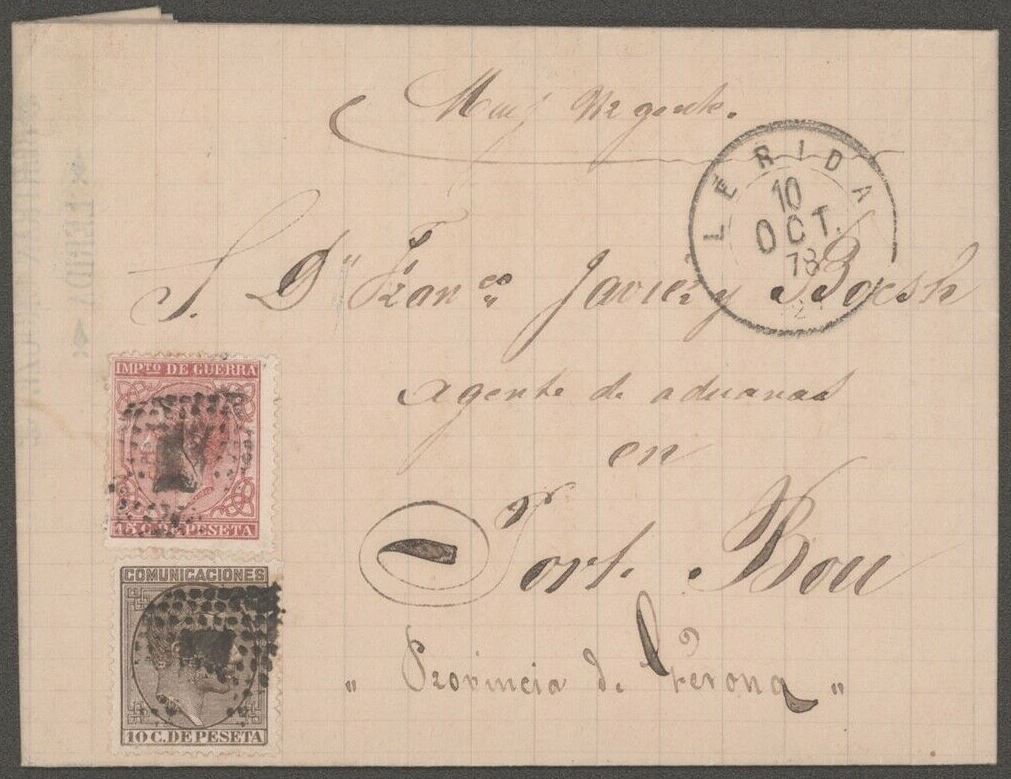 Muy Urgente.
LERIDA
10
OCT.
78
S. Dn Franco Javier y Bosch
agente de aduanas
en
Port. Bou
" Provincia de Gerona "
IMPTO DE GUERRA
15 C. DE PESETA
COMUNICACIONES
10 C. DE PESETA
LERIDA